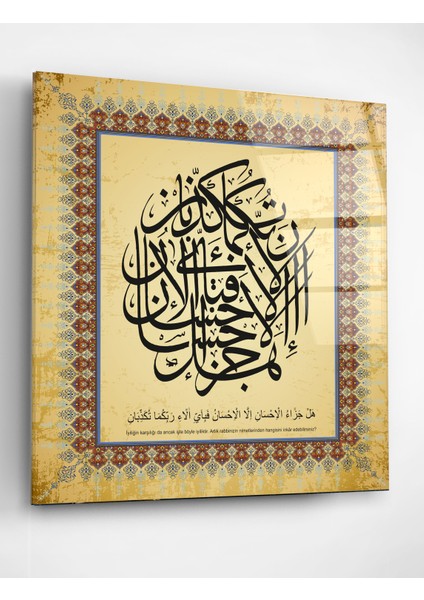 هل جزاء الإحسان إلا الإحسان فبأي آلاء ربكما تكذبان
هَلْ جَزَاءُ الْاِحْسَانِ اِلَّا الْاِحْسَانُ فَبِاَيِّ اٰلَاءِ رَبِّكُمَا تُكَذِّبَانِ
İyiliğin karşılığı da ancak işte böyle iyiliktir. Artık rabbinizin nimetlerinden hangisini inkâr edebilirsiniz?